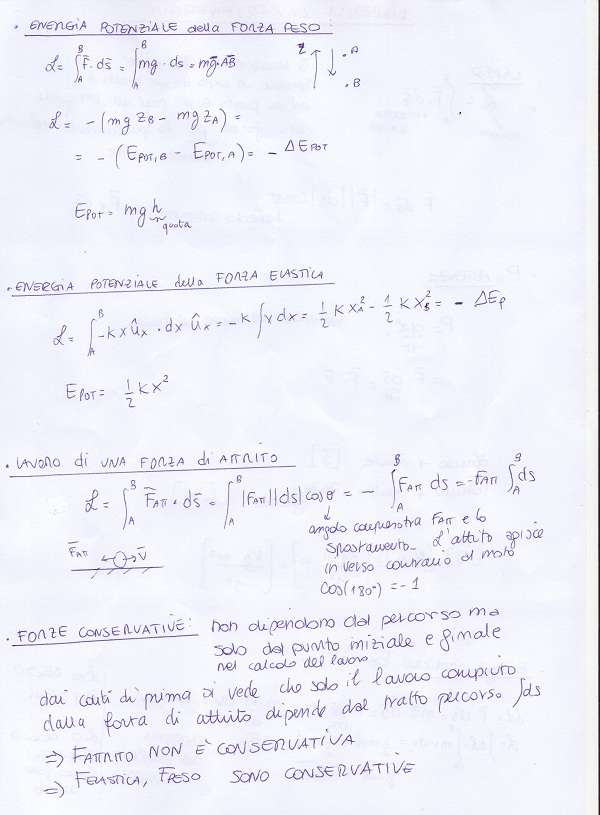 • ENERGIA POTENZIALE della FORZA PESO:
L = ∫_A^B F̄ · ds̄ = ∫_A^B mg · ds = mḡ · AB
z • A
• B
L = - (mg z_B - mg z_A) =
= - (E_POT,B - E_POT,A) = - ΔE_POT
E_POT = mgh
quota
• ENERGIA POTENZIALE della FORZA ELASTICA
L = ∫_A^B -kx û_x · dx û_x = -k ∫ x dx = 1/2 k x_A² - 1/2 k x_B² = - ΔE_p
E_POT = 1/2 k x²
• LAVORO di UNA FORZA di ATTRITO
L = ∫_A^B F̄_ATT · ds̄ = ∫_A^B |F_ATT| |ds| cos θ = - ∫_A^B F_ATT ds = -F_ATT ∫_A^B ds
angolo compreso tra F_ATT e lo
spostamento. L'attrito agisce
in verso contrario al moto
cos(180°) = -1
F̄_ATT v̄
• FORZE CONSERVATIVE: non dipendono dal percorso ma
solo dal punto iniziale e finale
nel calcolo del lavoro
dai conti di prima si vede che solo il lavoro compiuto
dalla forza di attrito dipende dal tratto percorso ∫ds
⇒ F_ATTRITO NON È CONSERVATIVA
⇒ F_ELASTICA, F_PESO SONO CONSERVATIVE